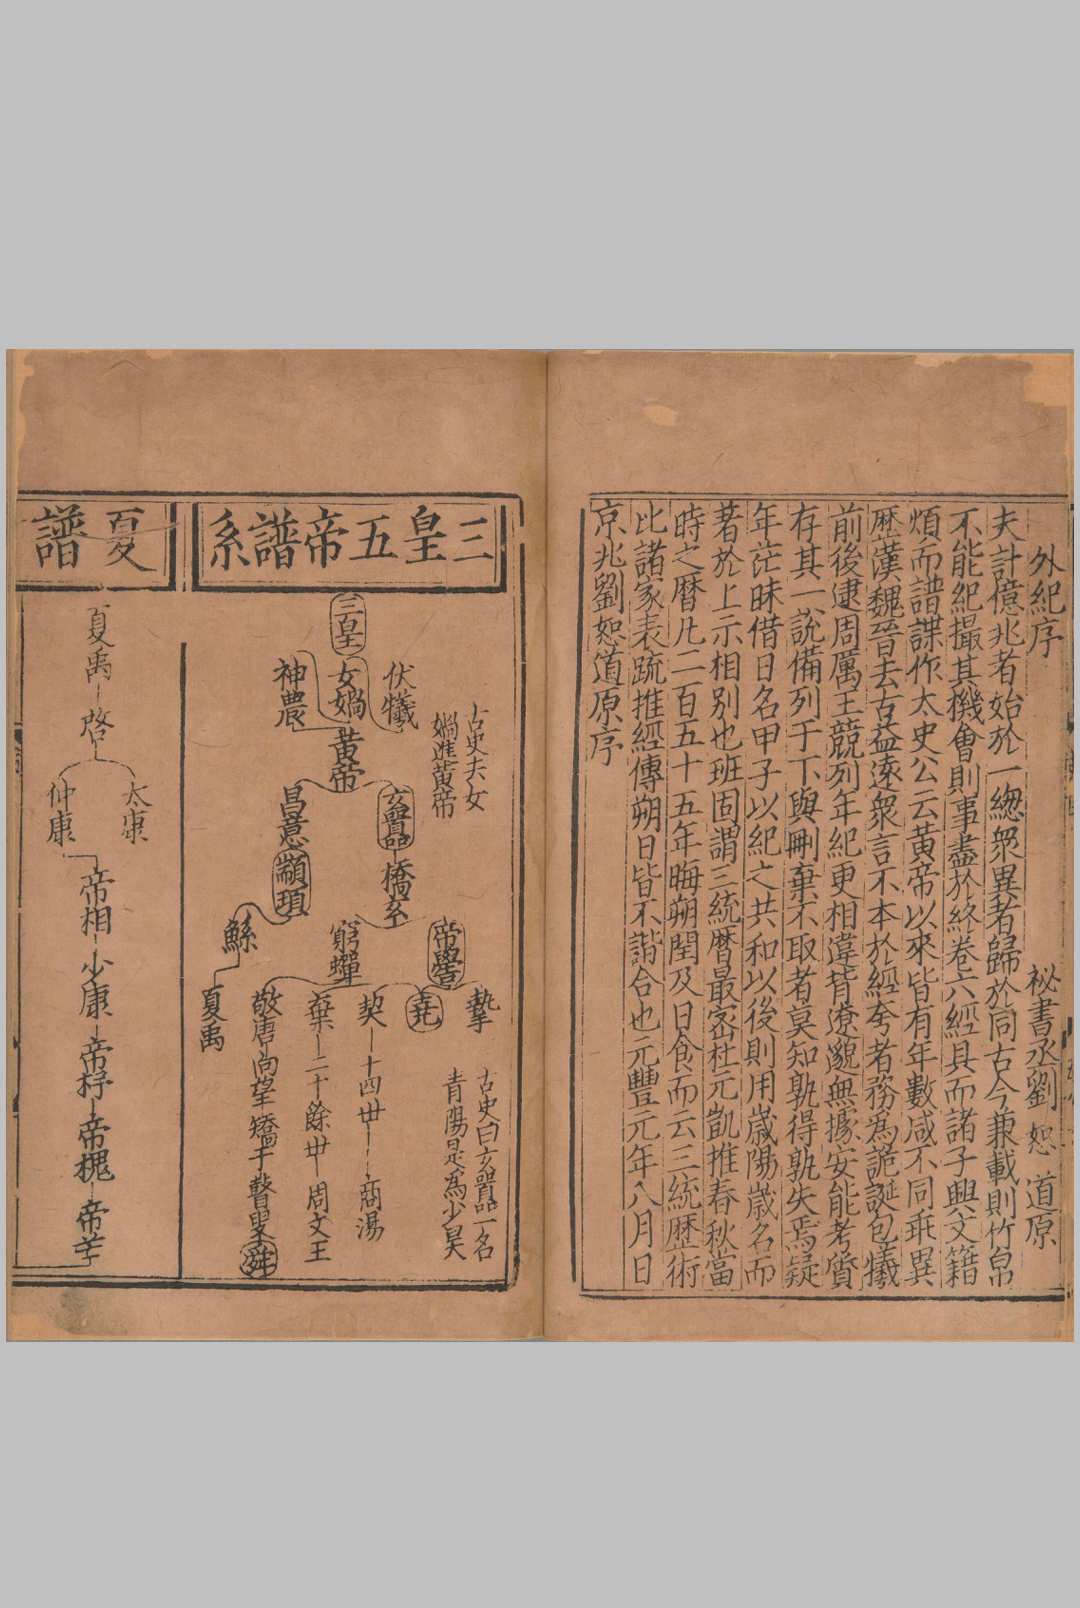 外紀序
秘書丞劉恕道原
夫計億兆者始於一緫衆異者歸於同古今兼載則竹帛
不能紀撮其機會則事盡於終卷六經具而諸子興文籍
煩而譜諜作太史公云黃帝以來皆有年數咸不同乖異
歷漢魏晉去古益逺衆言不本於經夸者務為詭誕包犧
前後逮周厲王競列年紀更相違背遼邈無據安能考質
存其一說備列于下與刪棄不取者莫知孰得孰失焉疑
年茫昧借日名甲子以紀之共和以後則用歲陽歲名而
著於上示相別也班固謂三統曆最密杜元凱推春秋當
時之曆凡二百五十五年晦朔閏及日食而云三統歷術
比諸家表疏推經傳朔日皆不諧合也元豐元年八月日
京兆劉恕道原序
三皇五帝譜系
三皇
伏犧
女媧
神農
古史夫女
媧進黃帝
黃帝
玄囂
昌意
顓頊
橋極
帝嚳
窮蟬
鯀
夏禹
摯
堯
契－十四世－商湯
棄－二十餘世－周文王
敬康句望橋牛瞽叟舜
古史曰玄囂一名
青陽是為少昊
夏譜
夏禹－啓
太康
仲康
帝相－少康－帝杼－帝槐－帝芒